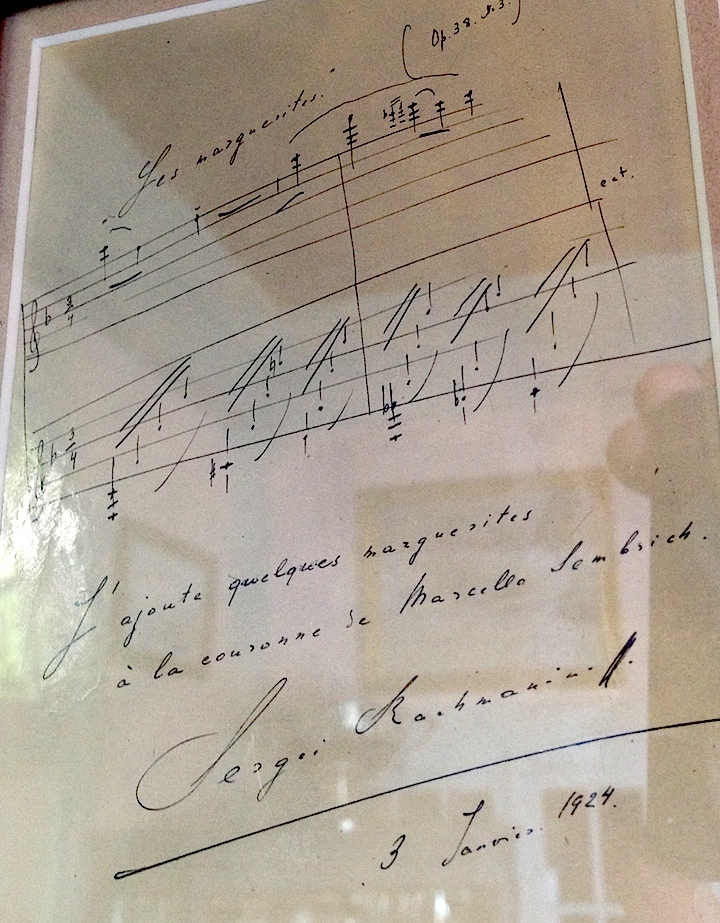 (Op. 38. № 3.)
"Les marguerites."
3/4
ect.
3/4
J'ajoute quelques marguerites
à la couronne de Marcella Sembrich.
Sergei Rachmaninoff.
3 Janvier. 1924.